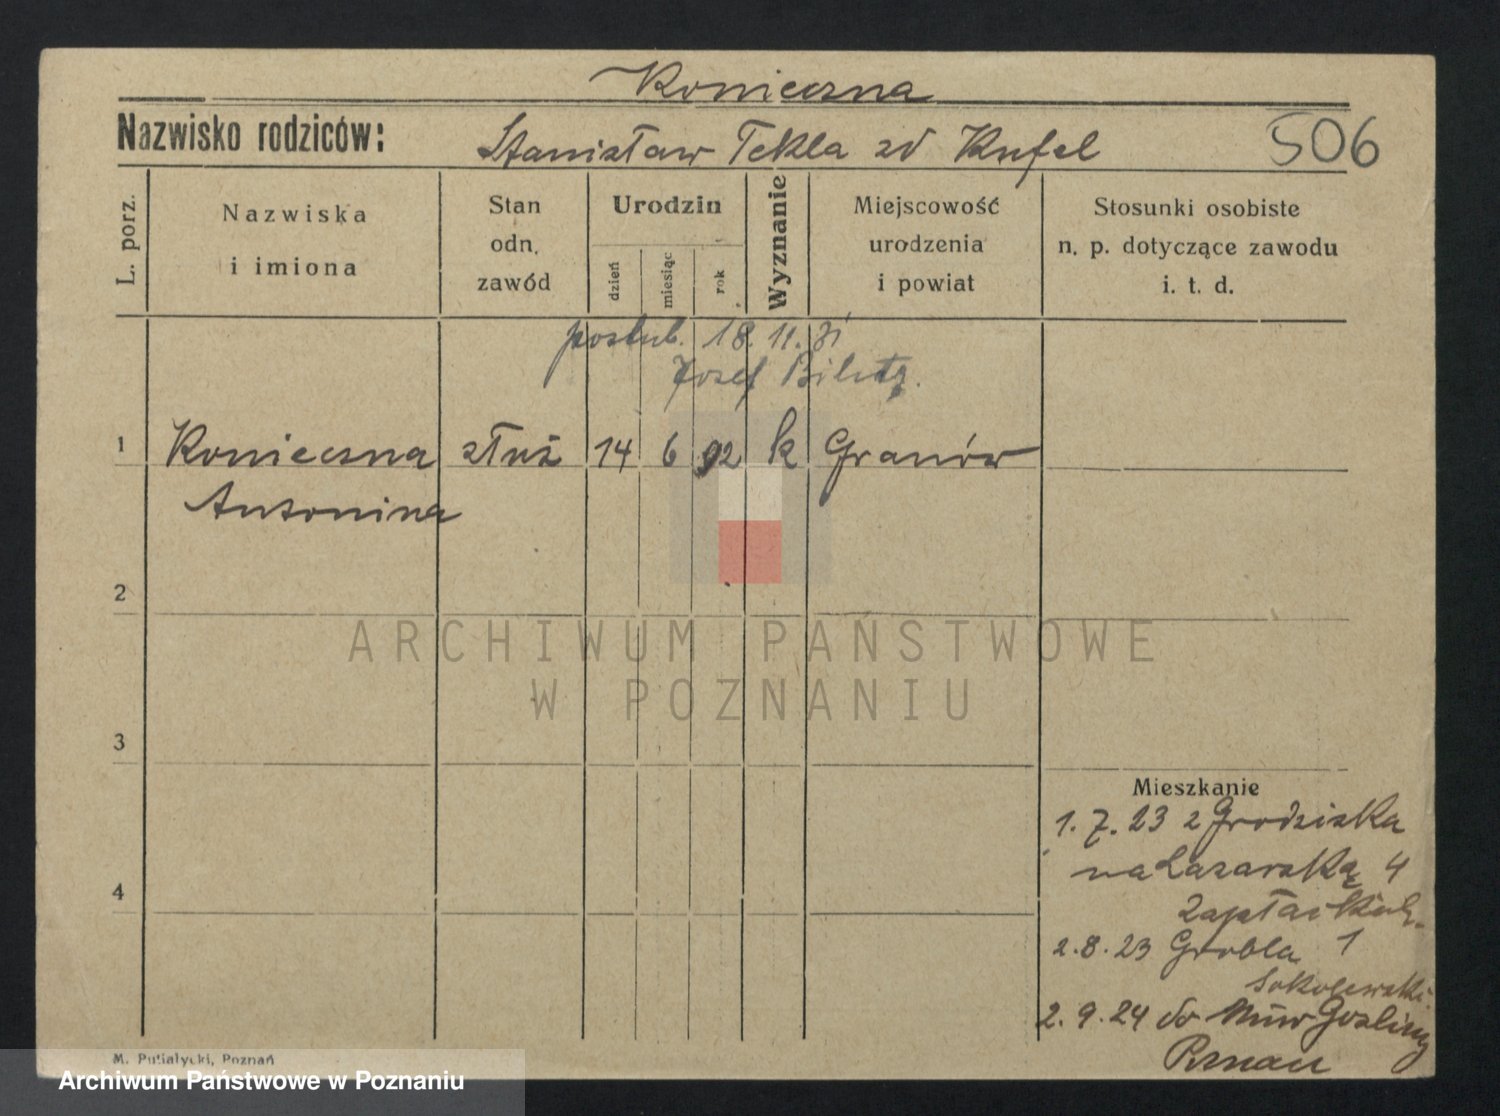 Konieczna
Nazwisko rodziców: Stanisław Tekla zd Kufel 506
L. porz.
Nazwiska
i imiona
Stan
odn.
zawód
Urodzin
dzień
miesiąc
rok
Wyznanie
Miejscowość
urodzenia
i powiat
Stosunki osobiste
n. p. dotyczące zawodu
i. t. d.
poślub. 18. 11. 31
Josef
1 Konieczna służ 14 6 92 k Granów
Antonina
2
ARCHIWUM PAŃSTWOWE
W POZNANIU
3
Mieszkanie
1. 7. 23 z Grodziska
na Łazarską 4
4
2. 8. 23 Grobla 1
Sokolewski
2. 9. 24 do Gośliny
M. Putiatycki, Poznań
Archiwum Państwowe w Poznaniu